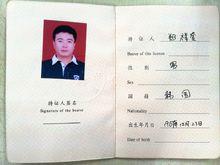 持证人签名
Signature of the bearer
持证人
Bearer of the license
性别 男
Sex
国籍 韩国
Nationality
出生年月日
Date of birth